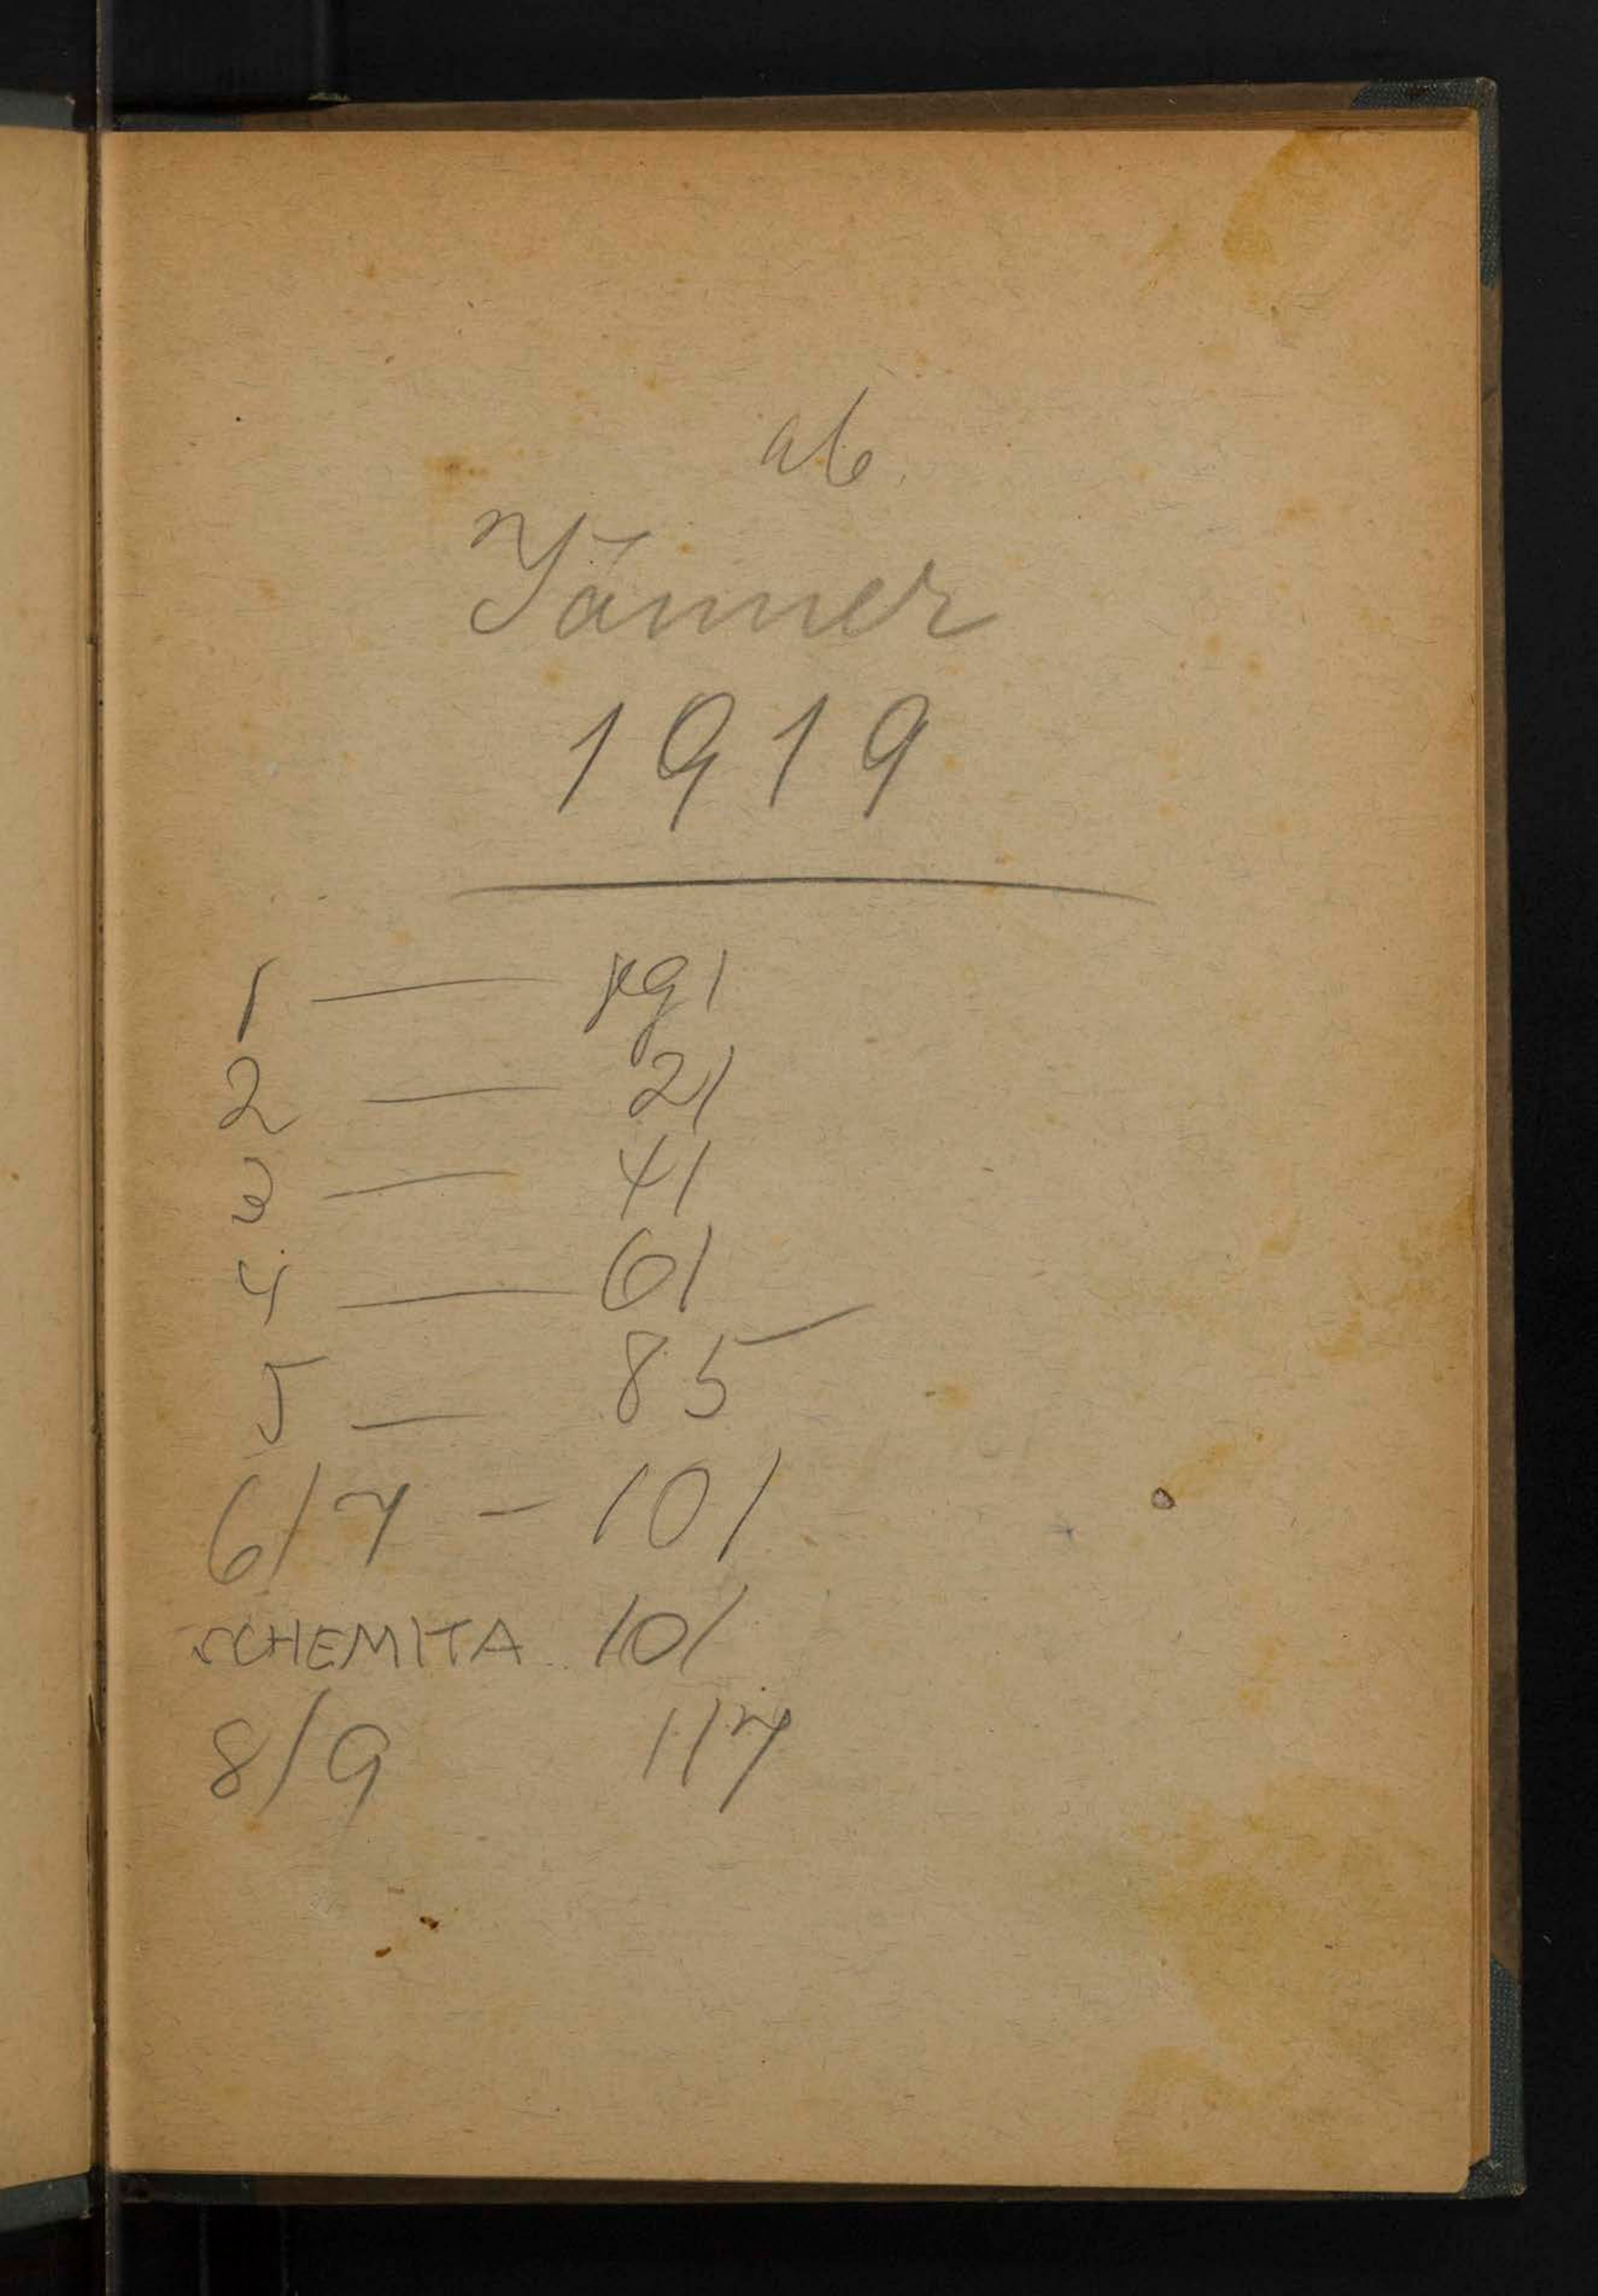 ab.
Jänner
1919
1 — pg 1
2 — 21
3 — 41
4 — 61
5 — 85
6/7 — 101
SCHEMITA 101
8/9 117